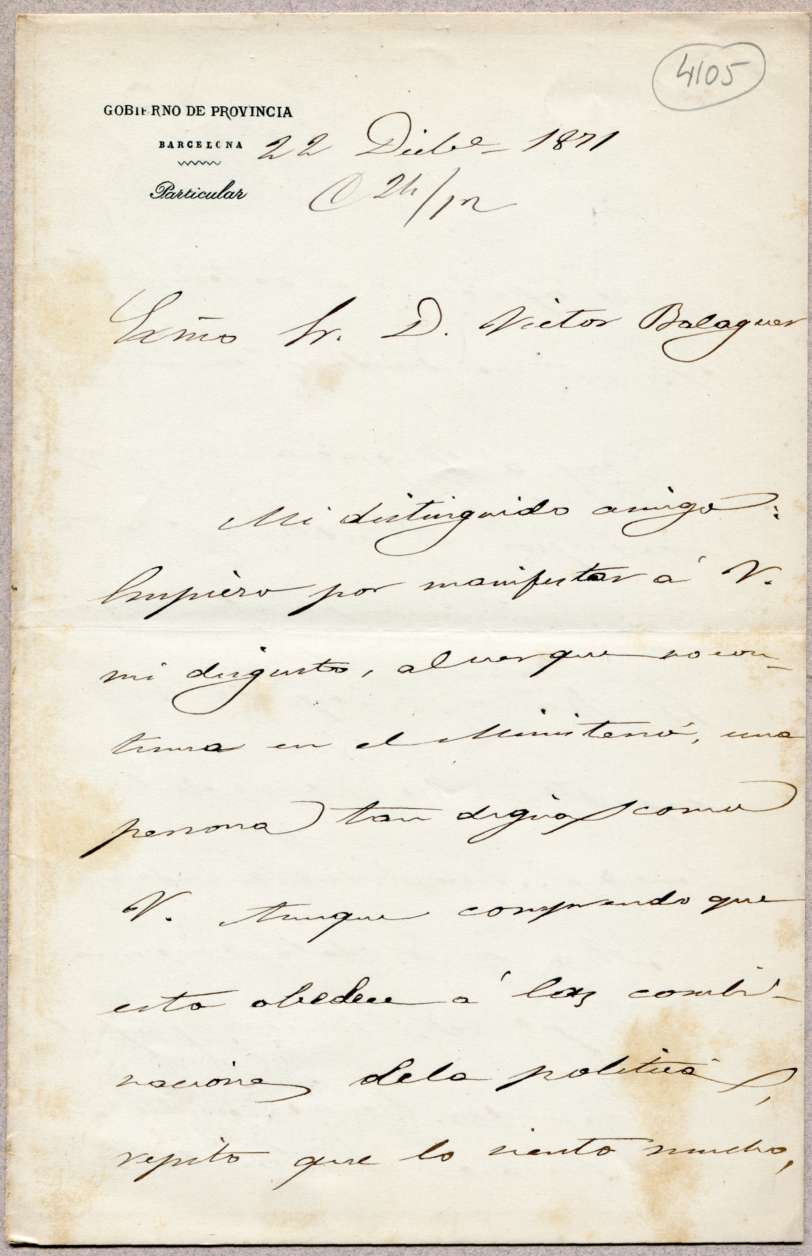 4105
GOBIERNO DE PROVINCIA
BARCELONA
Particular
22 Dicbe 1871
C 24/12
Exmo Sr. D. Victor Balaguer
Mi distinguido amigo:
Empiezo por manifestar á V.
mi disgusto, al ver que no con-
tinua en el Ministerio, una
persona tan digna como
V. Aunque comprendo que
esto obedece á las combi-
naciones de la politica,
repito que lo siento mucho,